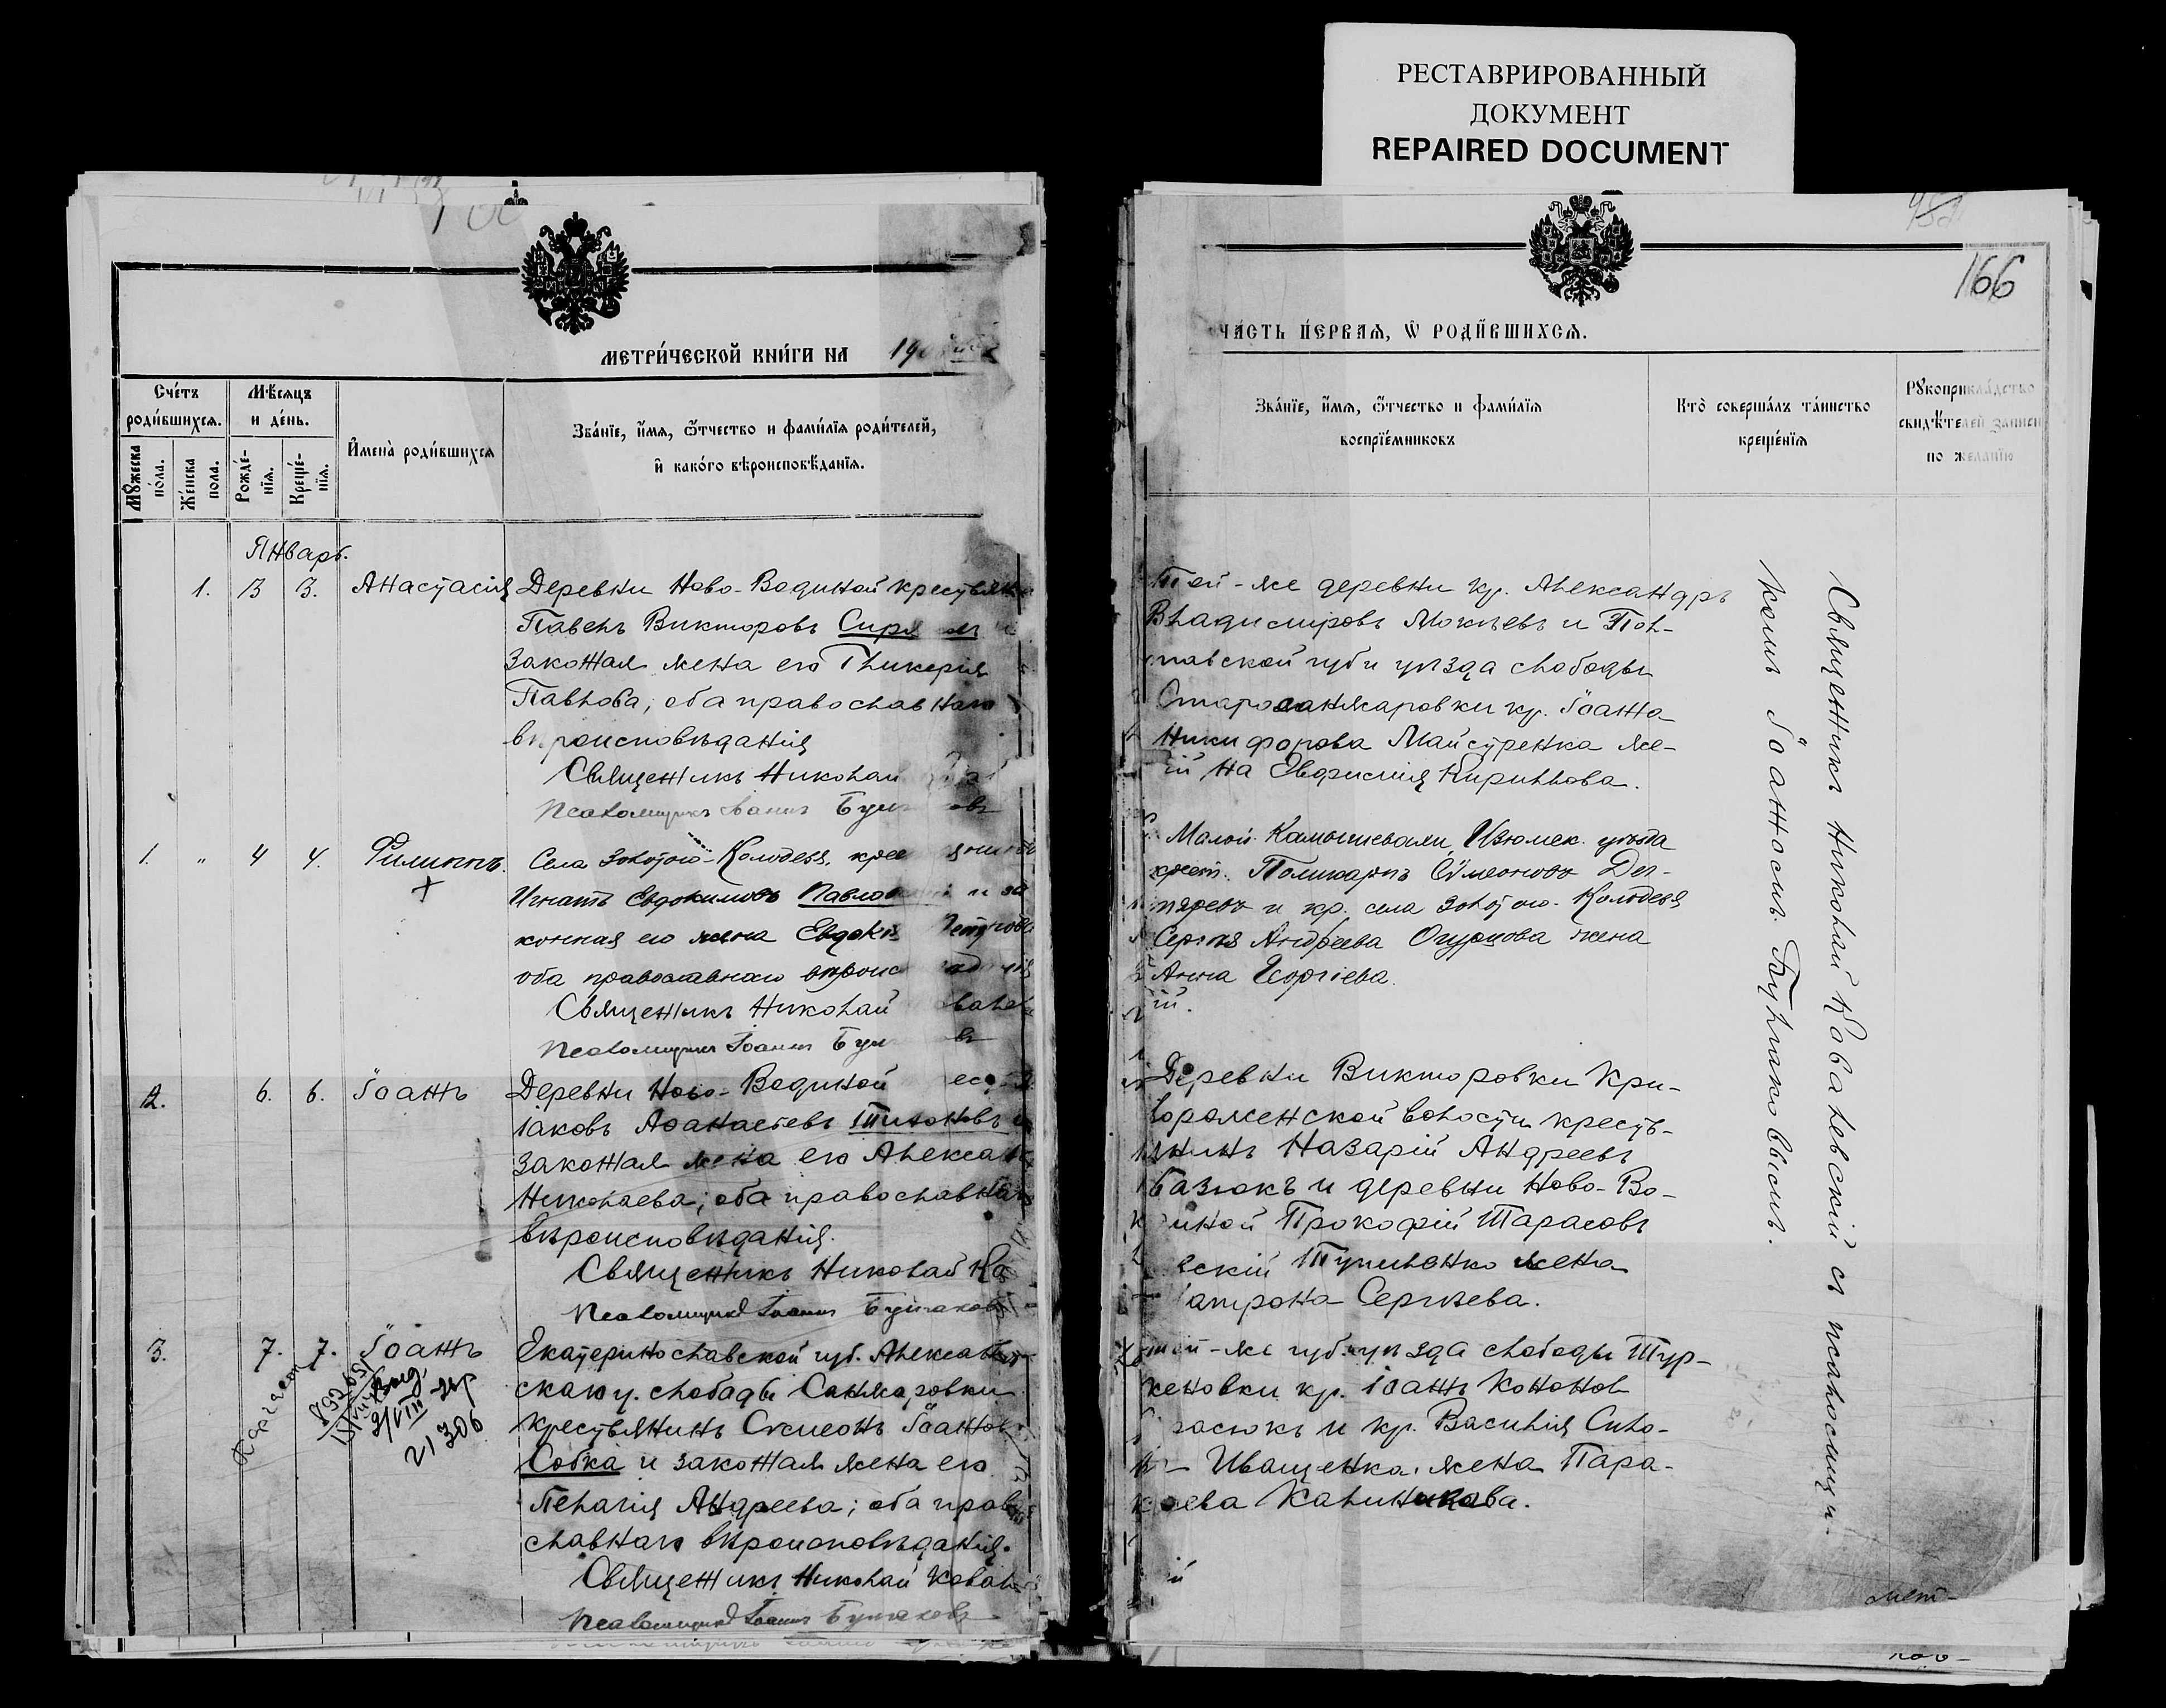 РЕСТАВРИРОВАННЫЙ
ДОКУМЕНТ
REPAIRED DOCUMENT
МЕТРИ́ЧЕСКОЙ КНИ́ГИ НА
Сче́тъ
роди́вшихся.
Мѣ́сяцъ
и де́нь.
Мꙋжеска
по́ла.
Же́нска
пола.
Рожде́-
нїя.
Креще́-
нїя.
И҆мена̀ роди́вшихся
Зва́нїе, и҆́мя, ѻ҆́тчество и фами́лїя роди́телей,
и҆ како́го вѣроисповѣ́данїя.
Январь.
1. 3 3. Анастасія Деревни Ново-Водиной крестьян
Павелъ Викторовъ
законная жена его Гликерія
Павлова; оба православнаго
вѣроисповѣданія
Священникъ Николай
Псаломщикъ Іоаннъ
1. " 4 4. Филиппъ. Села Золотого-Колодезя, крес
Игнатъ Евдокимовъ и за
конная его жена Евдокі
оба православнаго вѣроис
Священникъ Николай
Псаломщикъ Іоаннъ
2. 6. 6. Іоаннъ Деревни Ново-Водиной
Іаковъ Аѳанасіевъ Тихоновъ
законная жена его Алексан
Николаева; оба православна
вѣроисповѣданія.
Священникъ Николай Ко
Псаломщикъ Іоаннъ Булгаковъ
3. 7. 7. Іоаннъ Екатеринославской губ. Александ
скаго у. слободы Санжаровки
крестьянинъ Сѵмеонъ Іоаннов
Собка и законная жена его
Пелагія Андреева; оба право
славнаго вѣроисповѣданія.
Священникъ Николай Ковал
Псаломщикъ Іоаннъ Булгаковъ
21306
166
ЧА́СТЬ ПЕ́РВАЯ, Ѽ РОДИ́ВШИХСЯ.
Зва́нїе, и҆́мя, ѻ҆́тчество и фами́лїя
воспрїе́мниковъ
Кто̀ соверша́лъ та́инство
креще́нїя
Рꙋкоприкла́дство
свидѣ́телей записи
по желанїю
Той-же деревни кр. Александръ
Владиміровъ Мокѣевъ и Пол-
тавской губ и уѣзда слободы
Старосанжаровки кр. Іоанна
Никифорова Майстренка же-
на Евфимія Кириллова.
Малой Камышевахи, Изюмск. уѣзда
крест. Поликарпъ Сѵмеоновъ Дег-
тяревъ и кр. села Золотого-Колодезя
Сергѣя Андреева Огурцова жена
Анна Георгіева.
Деревни Викторовки Кри-
ворожской волости кресть-
янинъ Назарій Андреевъ
Базюкъ и деревни Ново-Во-
диной Прокофій Тарасовъ
жена
Сергѣева.
той-же губ. уѣзда слободы Тур-
кеновки кр. Іоаннъ Кононов
и кр. Василія Сило-
Иващенка жена Пара-
Калиникова.
Священникъ Николай Ковалевскій съ псаломщи-
комъ Іоанномъ Булгаковымъ.